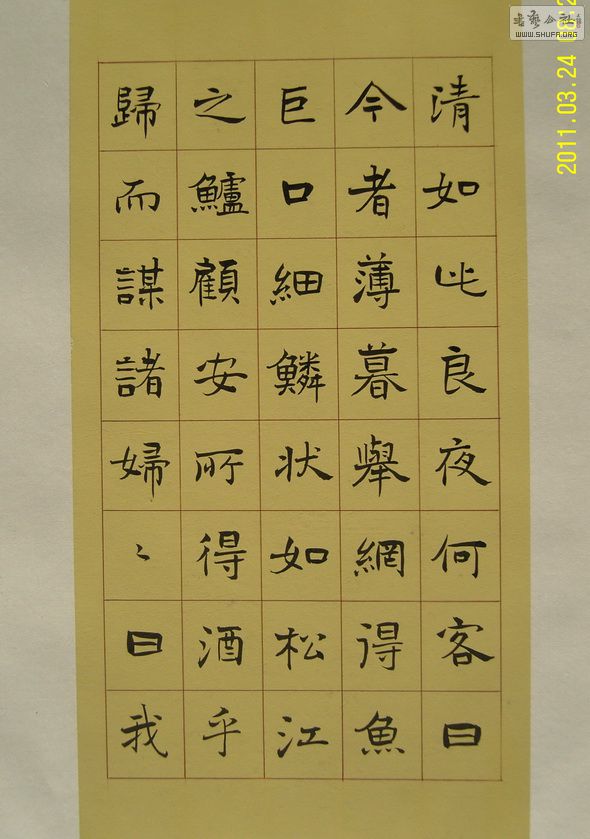 清如此良夜何客曰
今者薄暮舉網得魚
巨口細鱗狀如松江
之鱸顧安所得酒乎
歸而謀諸婦〻曰我
WWW.SHUFA.ORG
2011.03.24